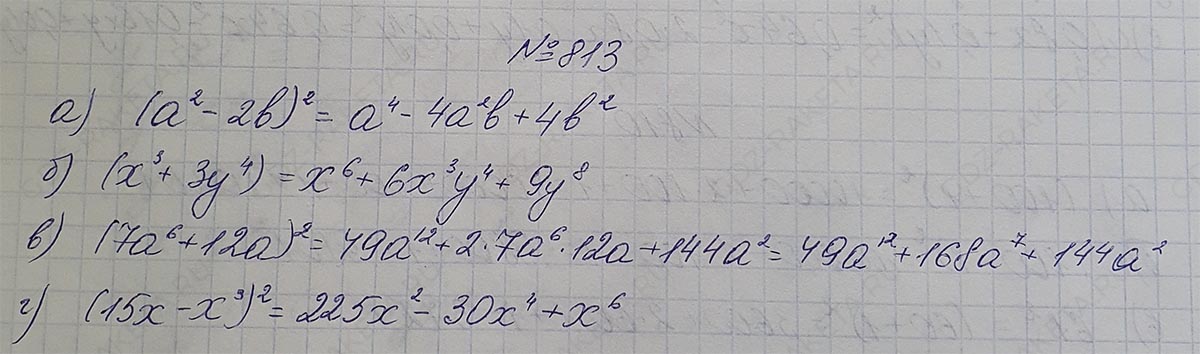 №813
а) (a² - 2b)² = a⁴ - 4a²b + 4b²
б) (x³ + 3y⁴) = x⁶ + 6x³y⁴ + 9y⁸
в) (7a⁶ + 12a)² = 49a¹² + 2·7a⁶·12a + 144a² = 49a¹² + 168a⁷ + 144a²
г) (15x - x³)² = 225x² - 30x⁴ + x⁶